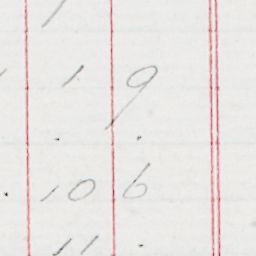 1 9
10 6
11